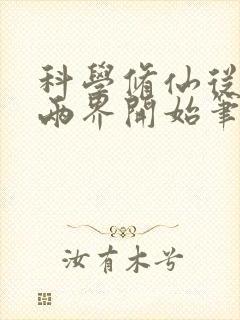 科學脩仙從
兩界開始筆
汝有木兮